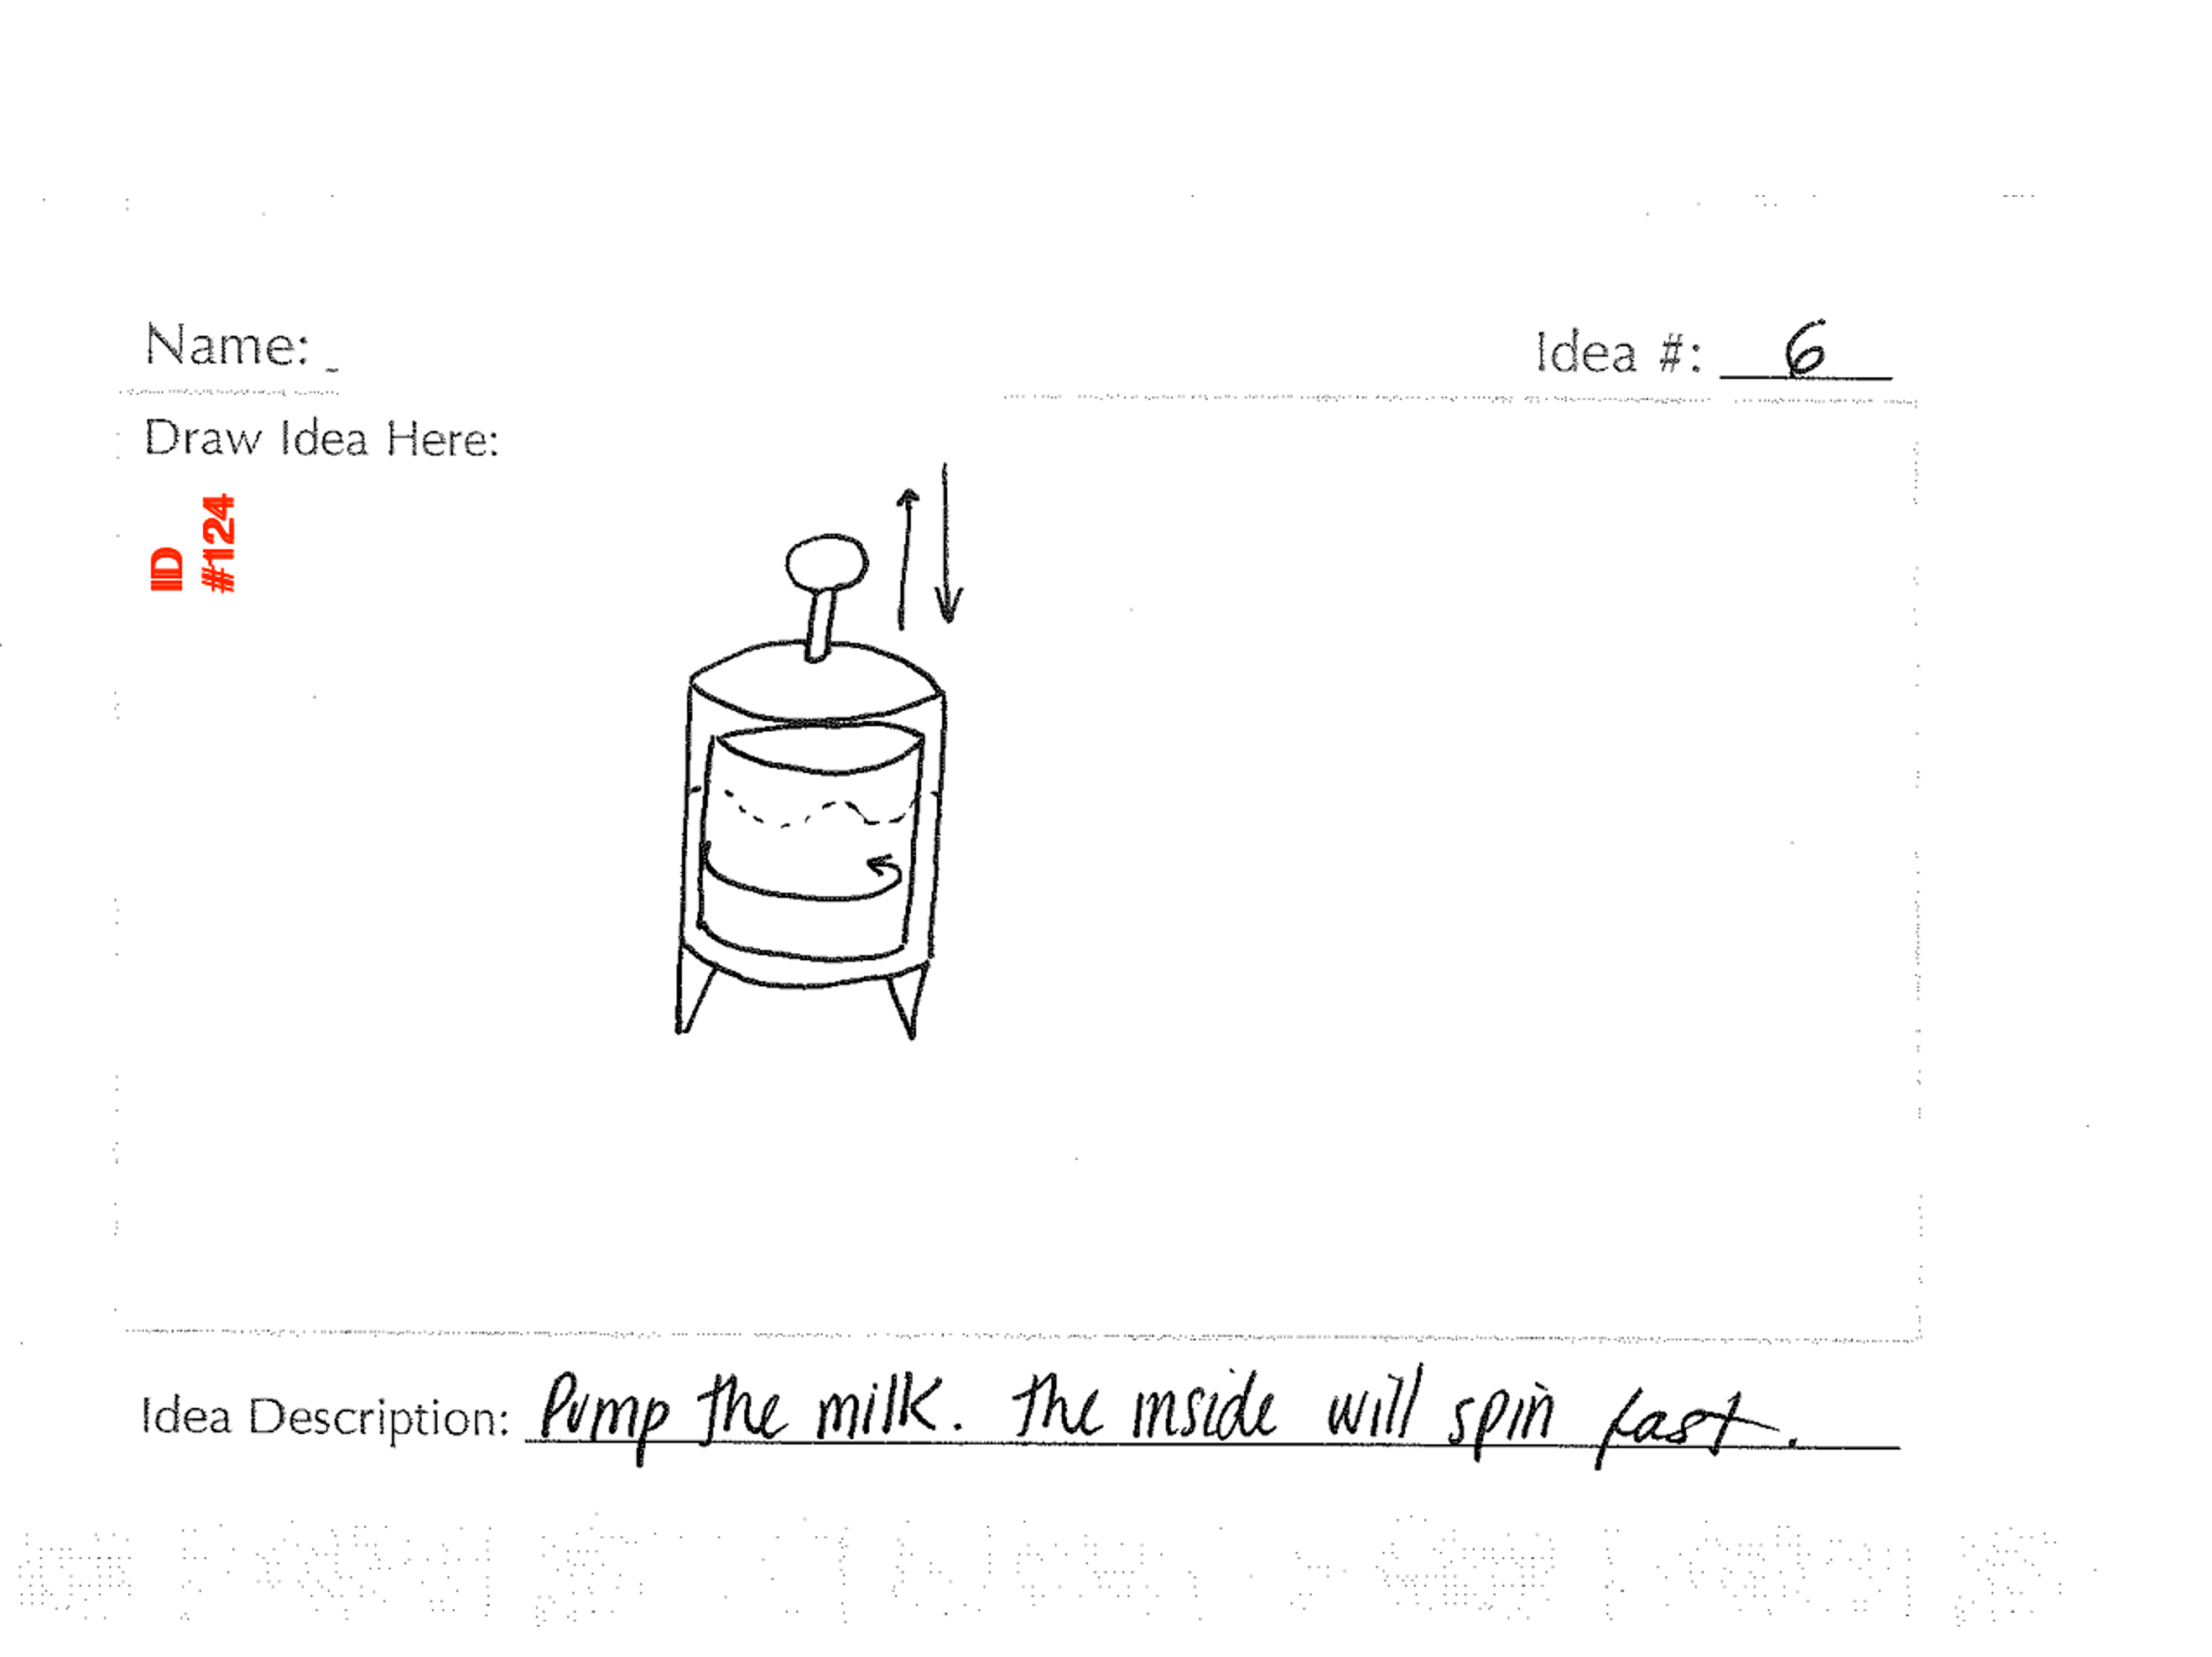 Name:
Idea #: 6
Draw Idea Here:
ID
#124
Idea Description: Pump the milk. The inside will spin fast.